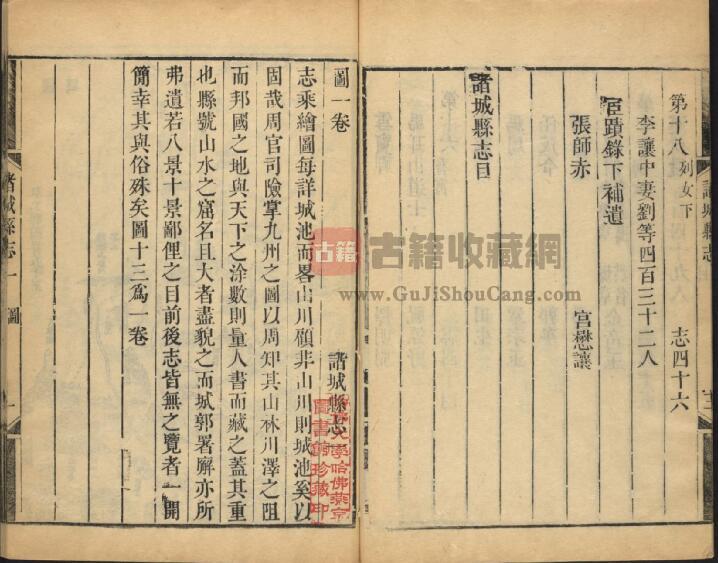 諸城縣志
第十八列女下
志四十六
李讓中妻劉等四百三十二人
宦蹟錄下補遺
張師赤
宮懋讓
諸城縣志目
圖一卷
諸城縣志一
志乘繪圖每詳城池而畧山川顧非山川則城池奚以
固哉周官司險掌九州之圖以周知其山林川澤之阻
而邦國之地與天下之涂數則量人書而藏之蓋其重
也縣號山水之窟名且大者盡貌之而城郭署廨亦所
弗遺若八景十景鄙俚之目前後志皆無之覽者一開
簡幸其與俗殊矣圖十三為一卷
諸城縣志一
圖
一
古籍
古籍收藏網
www.GuJiShouCang.com
哈佛大學哈佛燕京
圖書館珍藏印